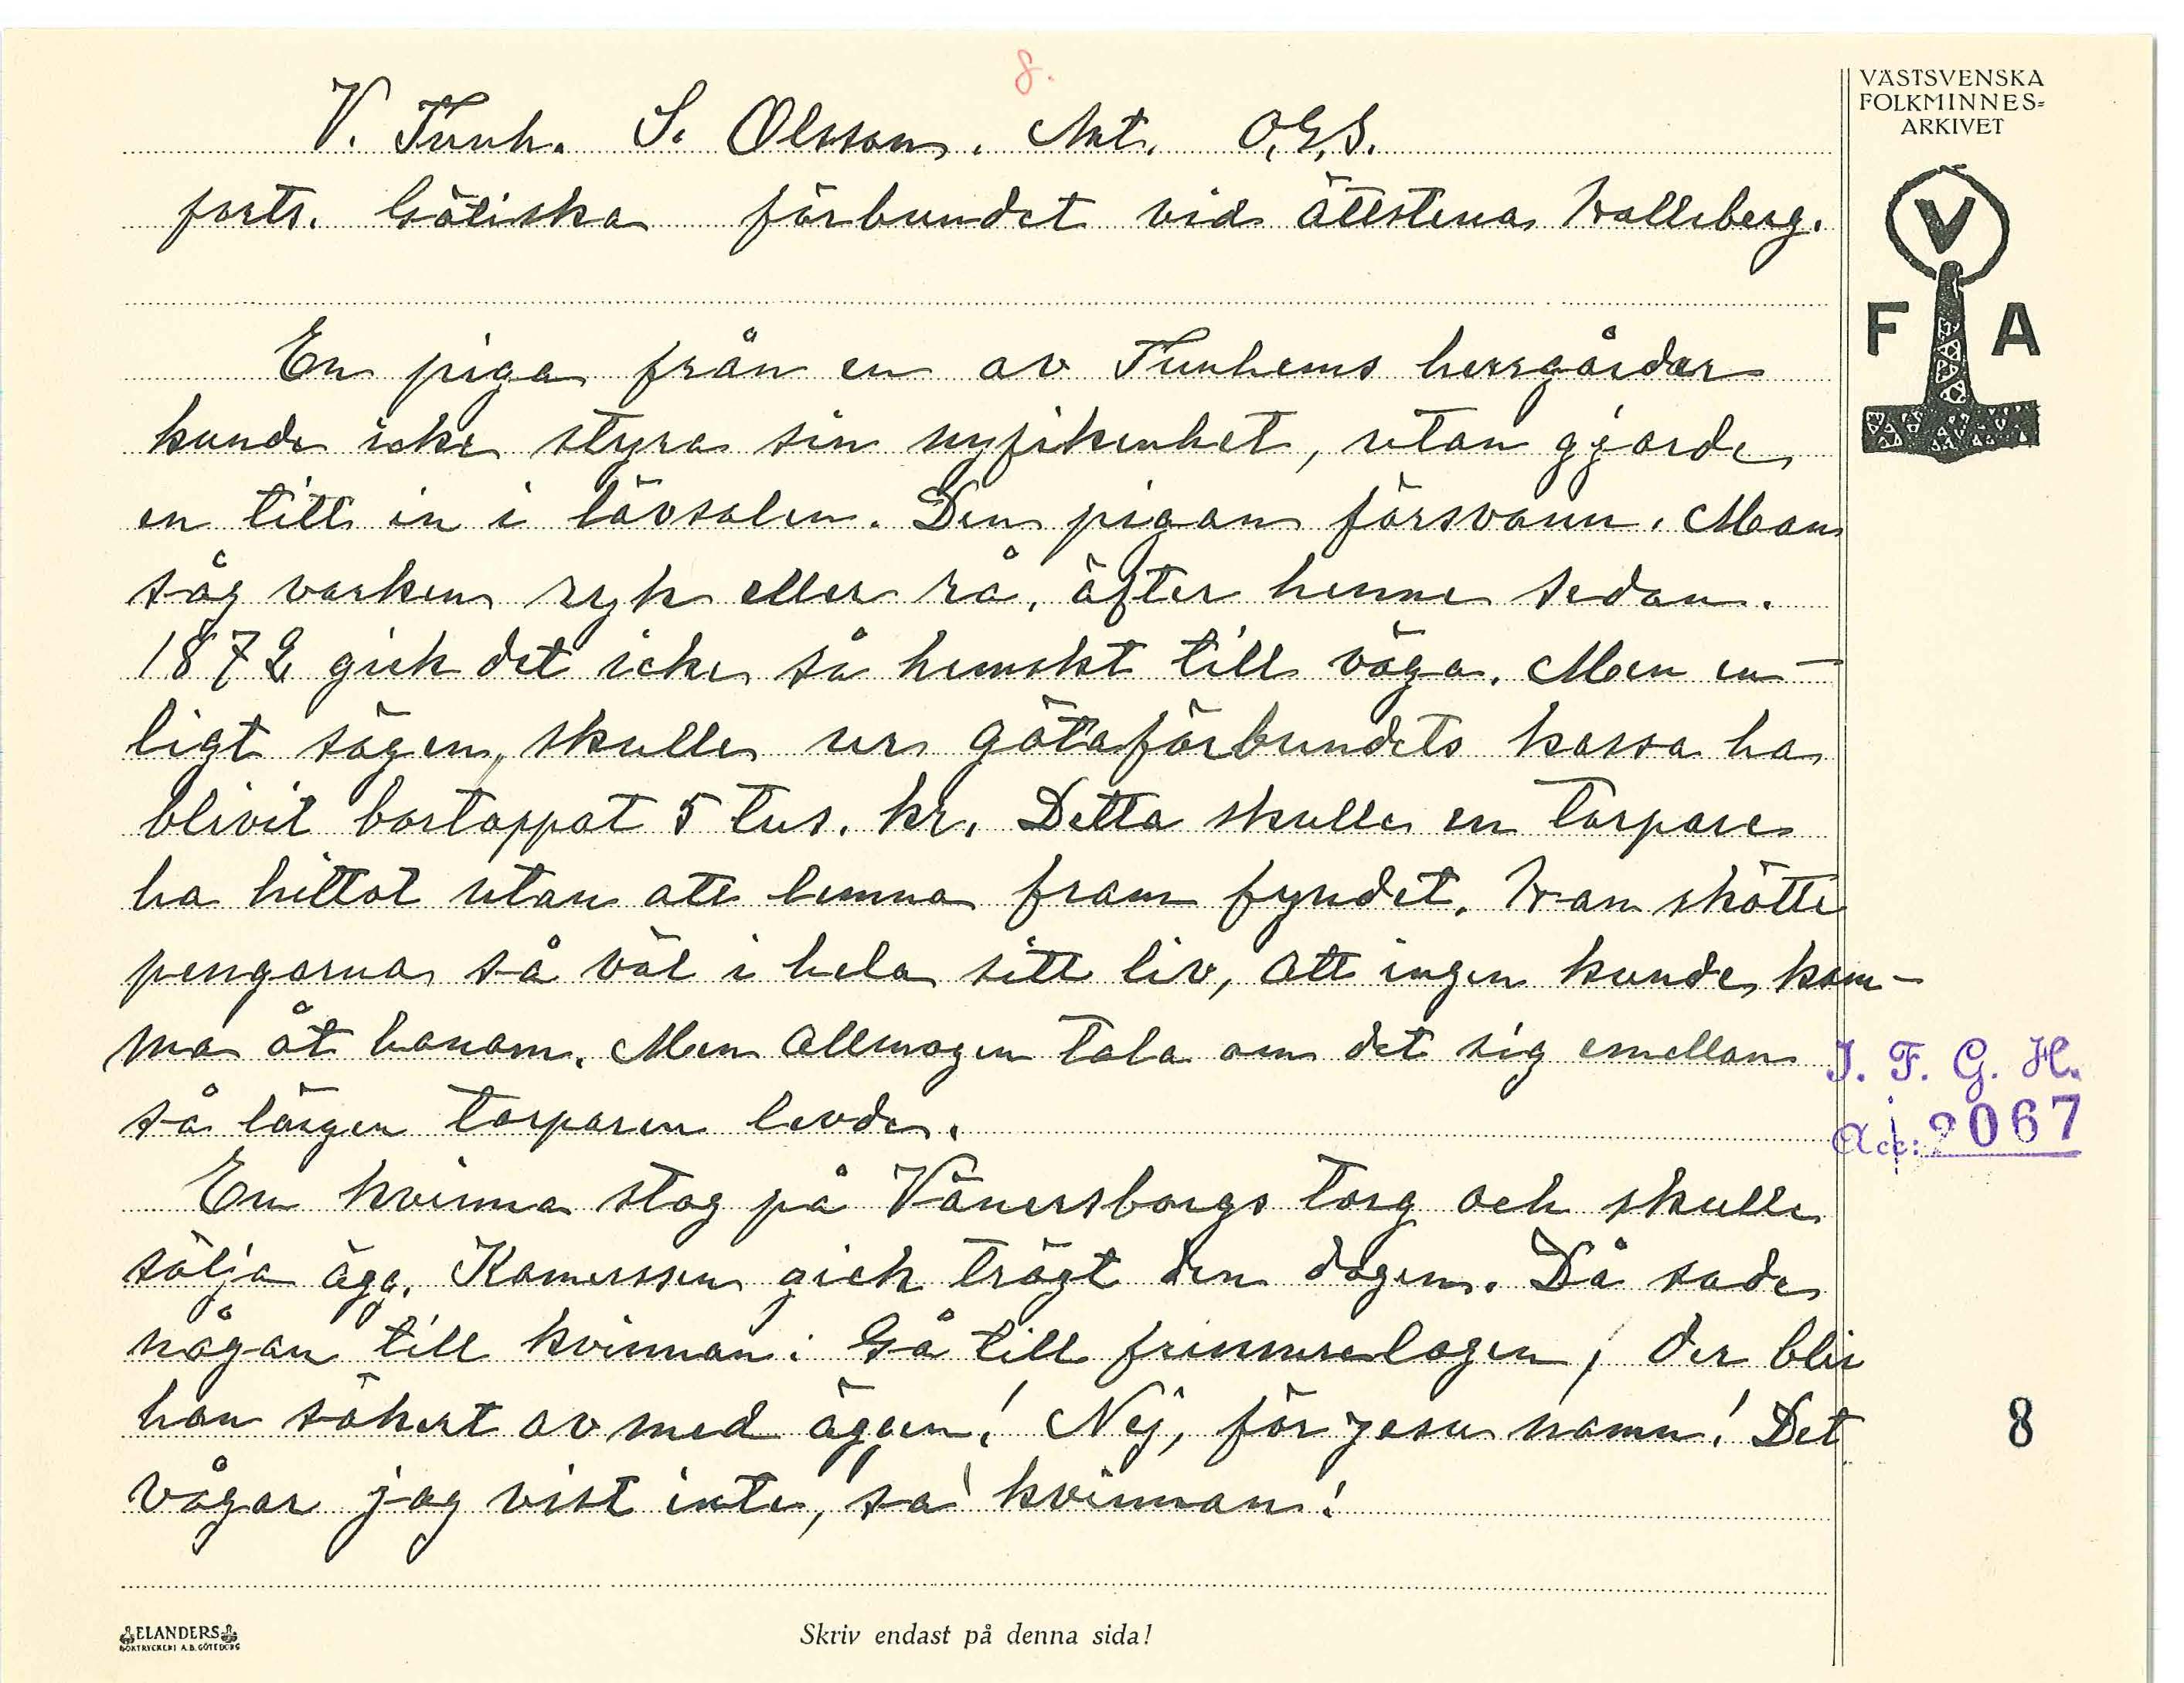 8.
VÄSTSVENSKA
FOLKMINNES=
ARKIVET
V. Tunh. S. Olsson. Ant. O.E.S.
forts. Götiska förbundet vid ättestena Halleberg.
V
F A
En piga från en av Tunhems herrgårdar
kunde icke styra sin nyfikenhet, utan gjorde
en titt in i lövsalen. Den pigan försvann. Man
såg varken ryk eller rå, äfter henne sedan.
1872 gick det icke så hemskt till väga. Men en-
ligt sägen, skulle ur götaförbundets kassa ha
blivit bortappat 5 tus. kr. Detta skulle en torpare
ha hittat utan att lemna fram fyndet. Han skötte
pengarna så väl i hela sitt liv, att ingen kunde kom-
ma åt honom. Men allmogen tala om det sig emellan
så länge torparen levde.
J. F. G. H.
Acc: 2067
En kvinna stog på Vänersborgs torg och skulle
sälja ägg. Komerssen gick trögt den dagen. Då sade
någon till kvinnan: Gå till frimurelogen, der blir
hon säkert av med äggen! Nej, för jesu namn! Det
vågar jag vist inte, sa' kvinnan!
8
ELANDERS
BOKTRYCKERI A.B. GÖTEBORG
Skriv endast på denna sida!